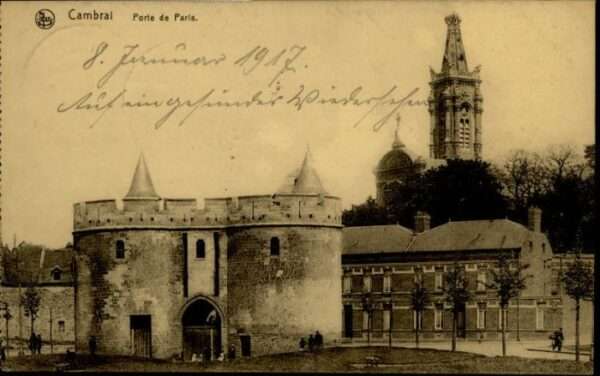 Cambrai Porte de Paris.
8. Januar 1917.
Auf ein gesundes Wiedersehen